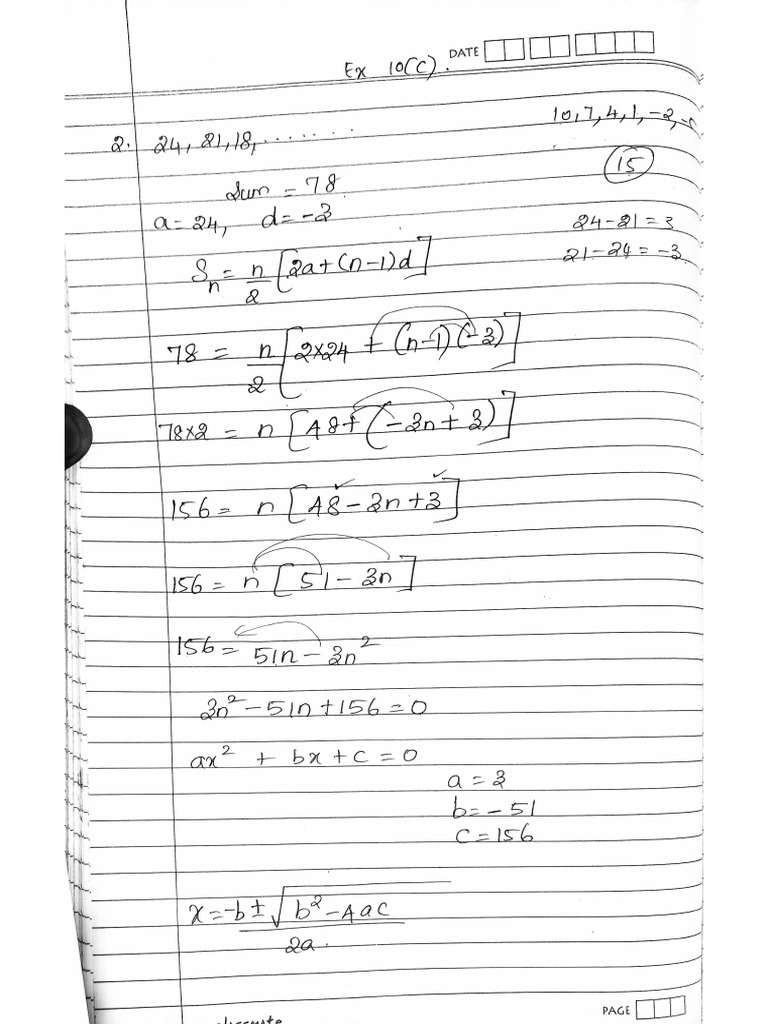 DATE
Ex 10(C).
10, 7, 4, 1, -2,
2. 24, 21, 18, .......
15
Sum = 78
a = 24, d = -3
24 - 21 = 3
21 - 24 = -3
Sn = n/2 [2a + (n-1)d]
78 = n/2 [2×24 + (n-1)(-3)]
78×2 = n [48 + (-3n + 3)]
156 = n [48 - 3n + 3]
156 = n [51 - 3n]
156 = 51n - 3n²
3n² - 51n + 156 = 0
ax² + bx + c = 0
a = 3
b = -51
c = 156
x = -b ± √b² - 4ac / 2a.
PAGE